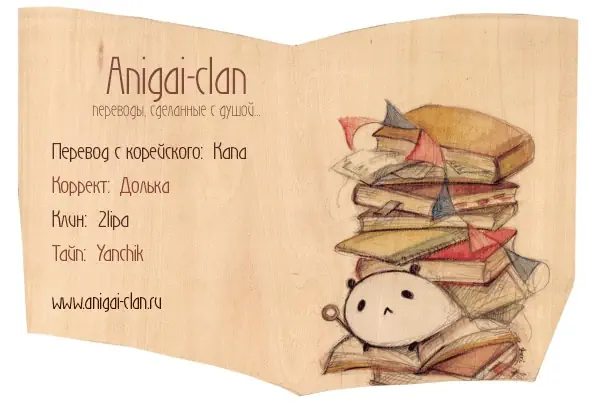 Anigai-clan
переводы, сделанные с душой...
Перевод с корейского: Капа
Коррект: Долька
Клин: 2lipa
Тайп: Yanchik
www.anigai-clan.ru